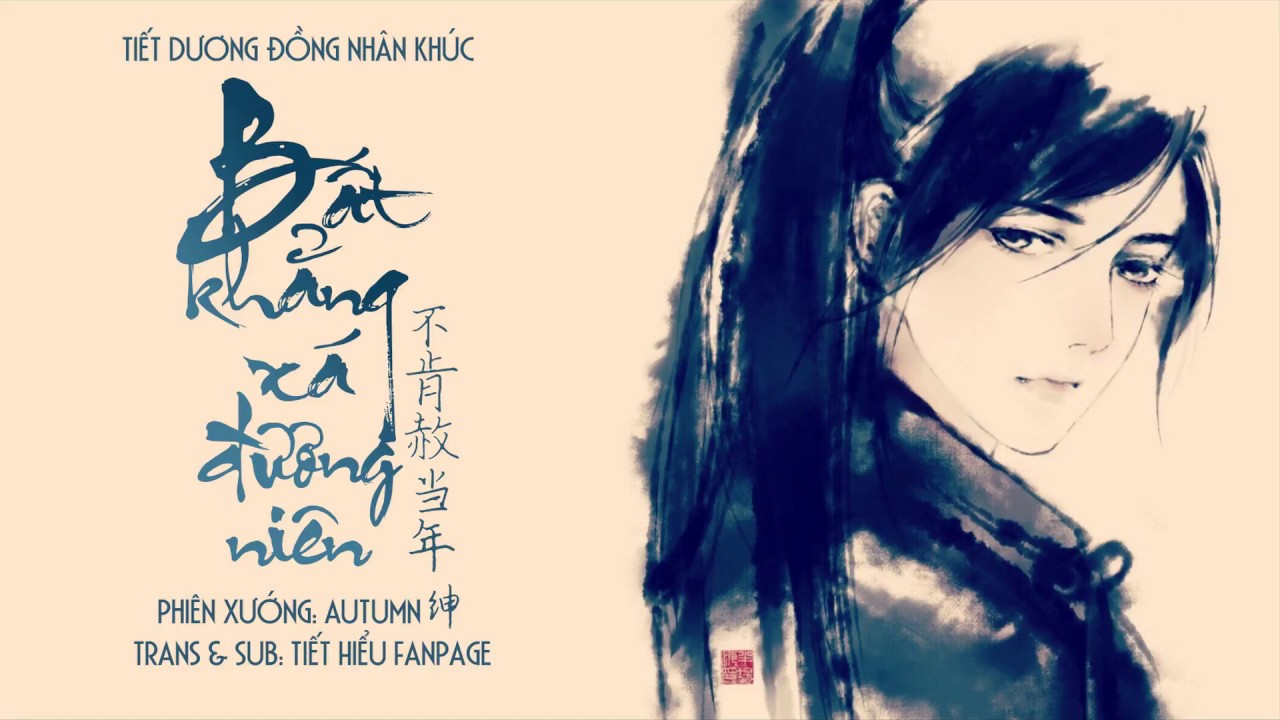 TIẾT DƯƠNG ĐỒNG NHÂN KHÚC
Bất
khẳng
xá
đương
niên
不肯赦当年
PHIÊN XƯỚNG: AUTUMN 绅
TRANS & SUB: TIẾT HIỂU FANPAGE